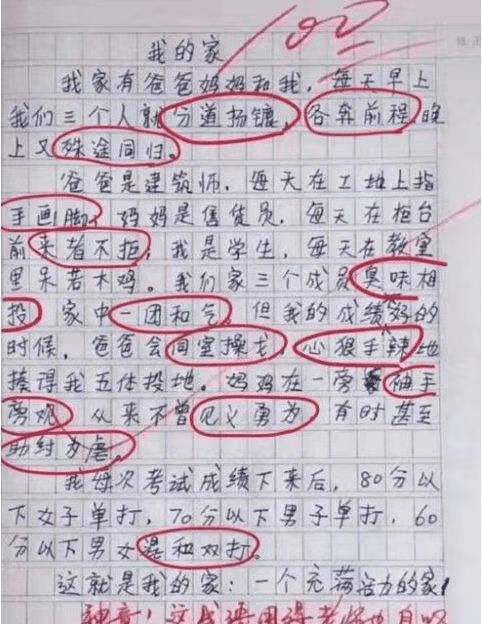 我的家
我家有爸爸妈妈和我，每天早上
我们三个人就分道扬镳，各奔前程，晚
上又殊途同归。
爸爸是建筑师，每天在工地上指
手画脚，妈妈是售货员，每天在柜台
前来者不拒；我是学生，每天在教室
里呆若木鸡。我们家三个成员臭味相
投，家中一团和气。但我的成绩好的
时候，爸爸会同室操戈，心狠手辣地
揍得我五体投地。妈妈在一旁袖手
旁观，从来不曾见义勇为，有时甚至
助纣为虐。
我每次考试成绩下来后，80分以
下女子单打，70分以下男子单打，60
分以下男女混和双打。
这就是我的家：一个充满活力的家！